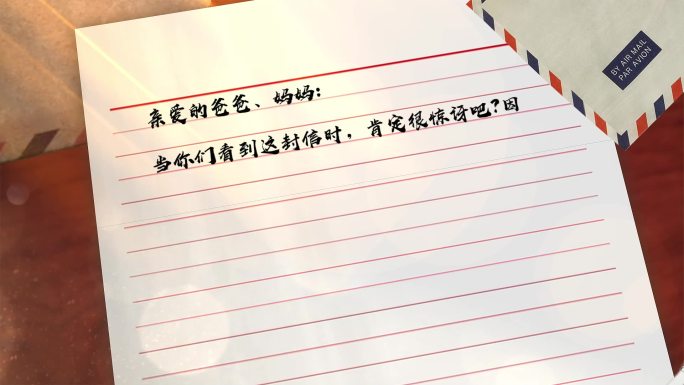 亲爱的爸爸、妈妈:
当你们看到这封信时，肯定很惊讶吧?因
BY AIR MAIL
PAR AVION